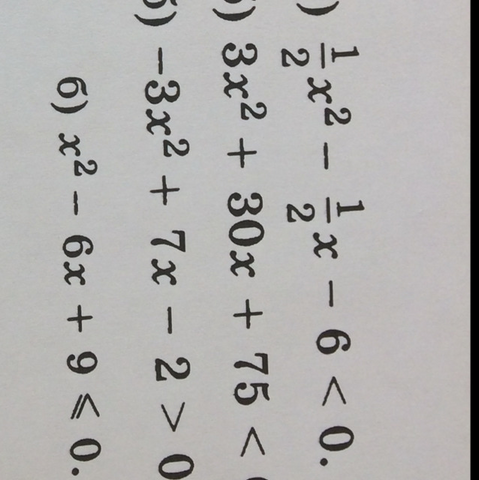 ) 1/2 x² − 1/2 x − 6 < 0.
) 3x² + 30x + 75 <
б) −3x² + 7x − 2 > 0
б) x² − 6x + 9 ⩽ 0.